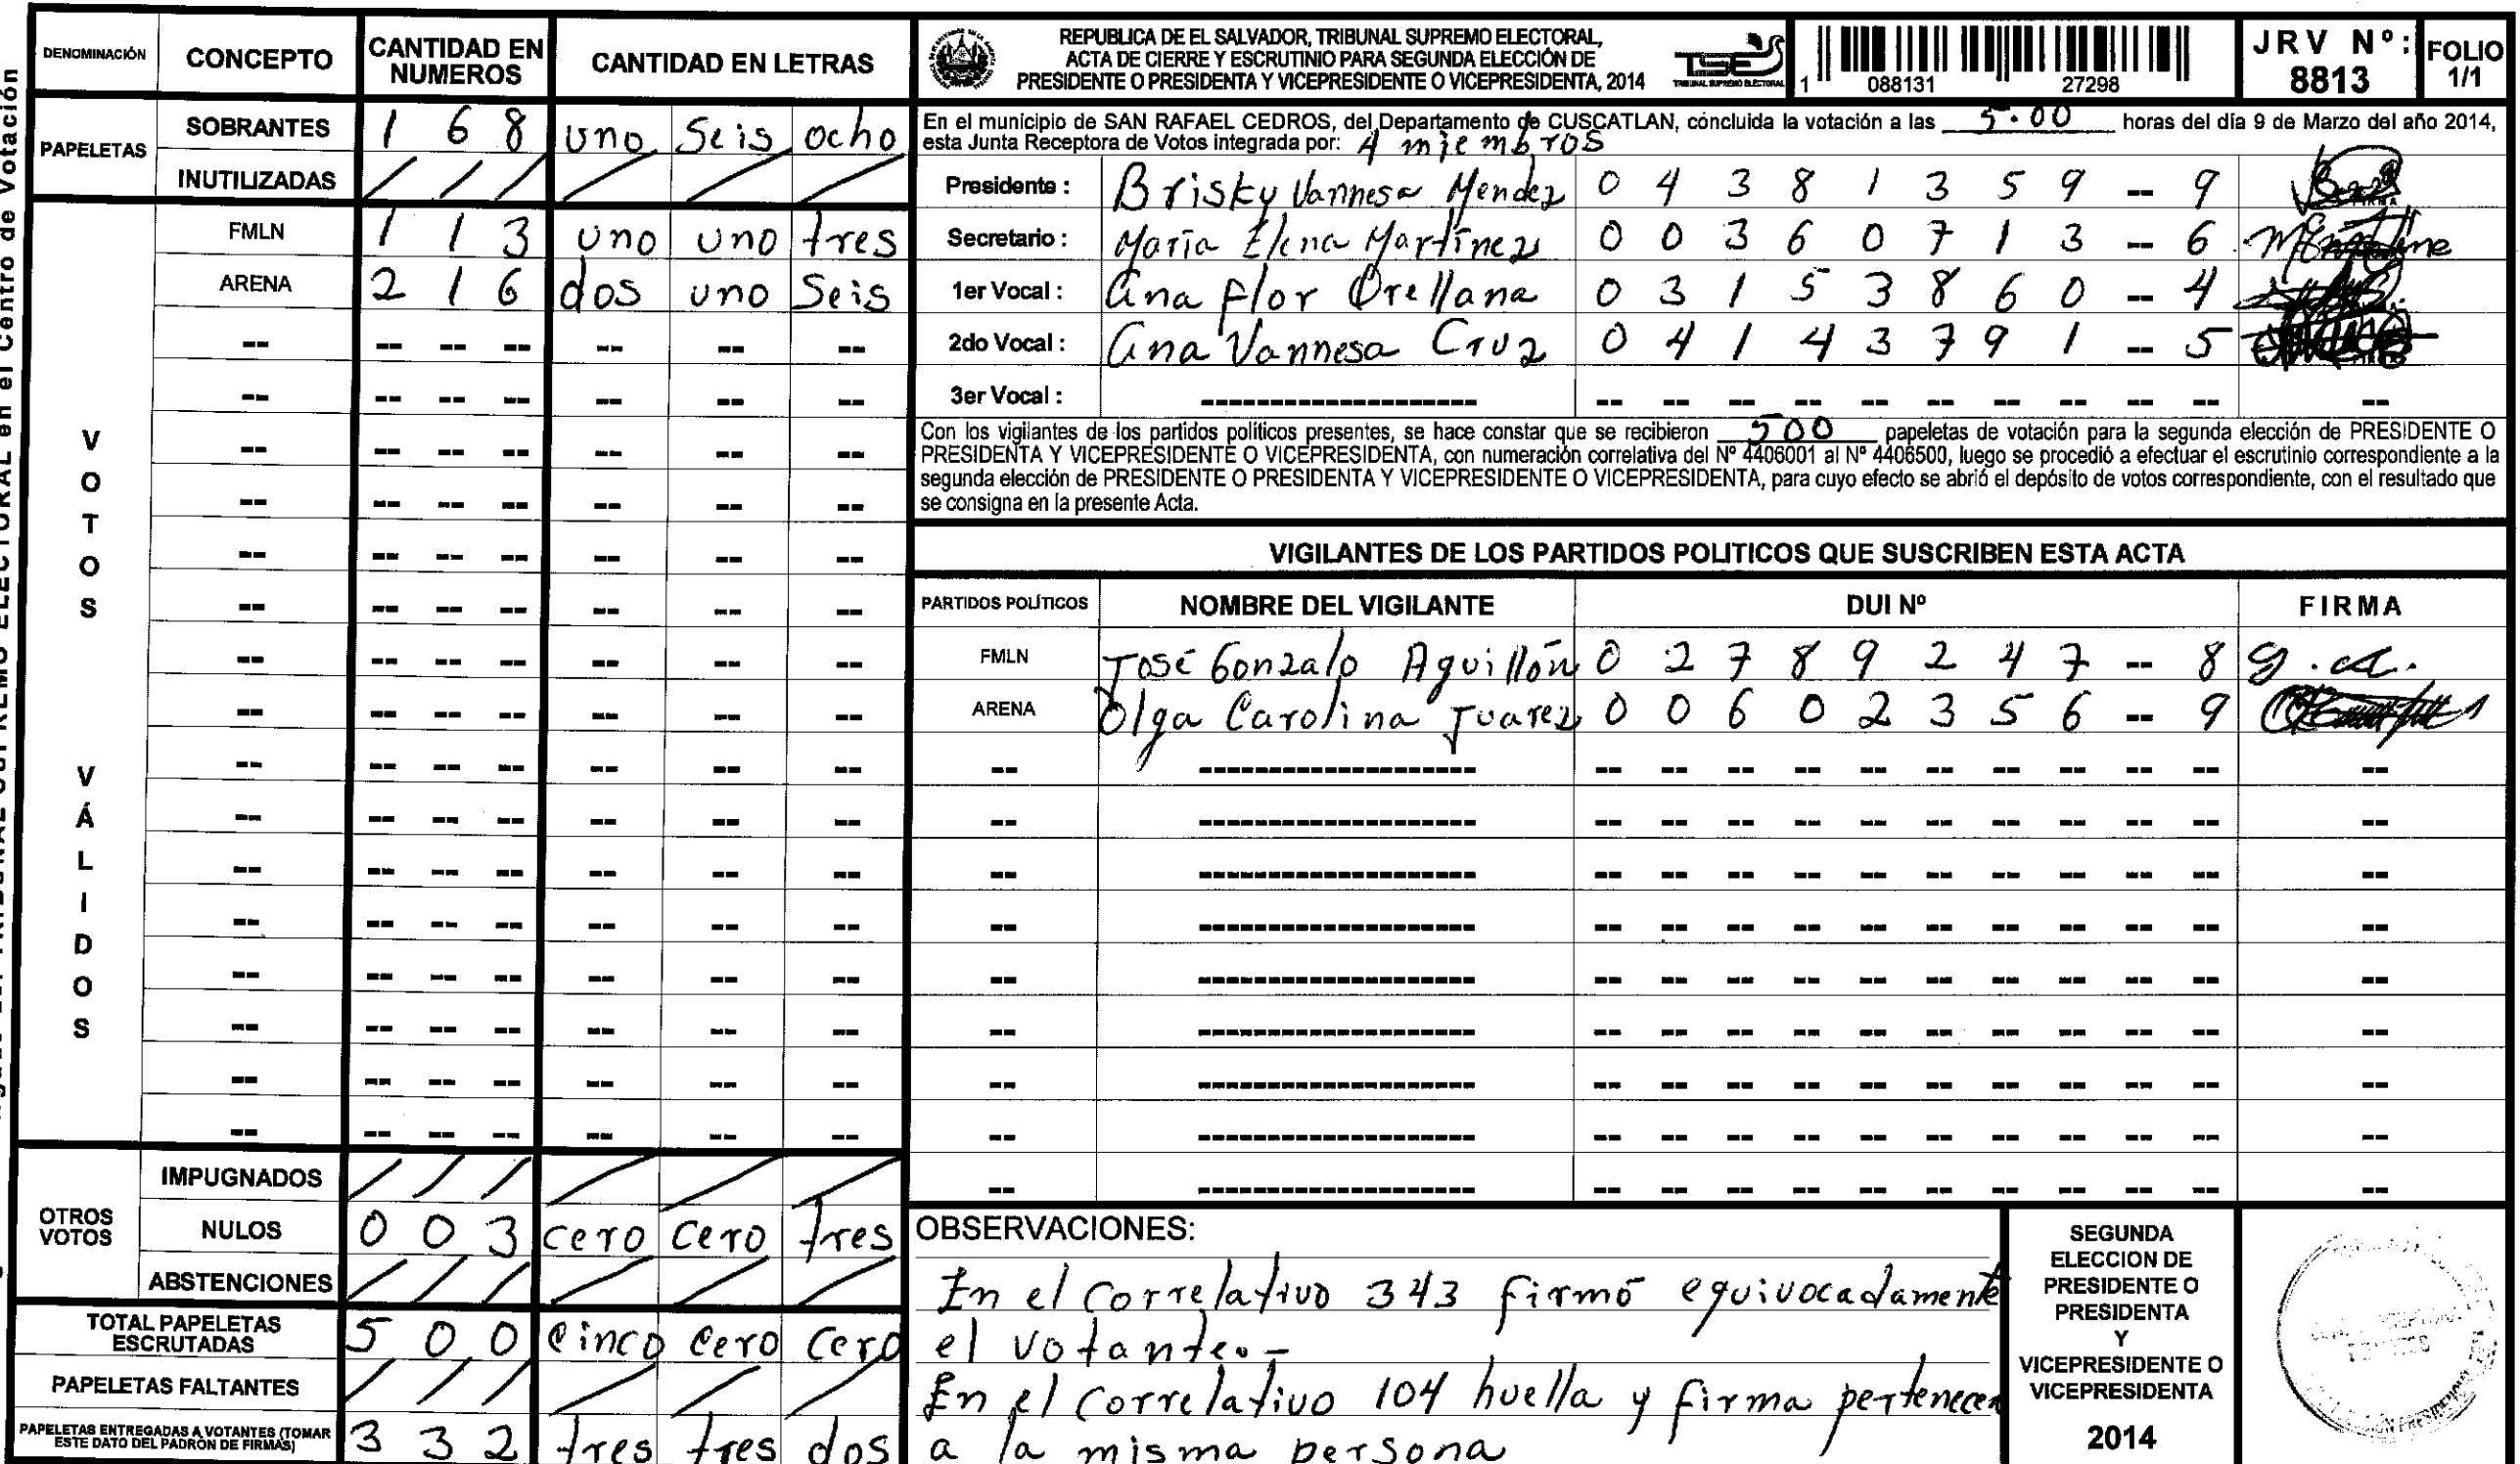 DENOMINACIÓN CONCEPTO CANTIDAD EN NUMEROS CANTIDAD EN LETRAS
PAPELETAS
SOBRANTES 1 6 8 uno Seis ocho
INUTILIZADAS / / / / / /
VOTOS VÁLIDOS
FMLN 1 1 3 uno uno tres
ARENA 2 1 6 dos uno Seis
OTROS VOTOS
IMPUGNADOS / / / / / /
NULOS 0 0 3 cero cero tres
ABSTENCIONES / / / / / /
TOTAL PAPELETAS ESCRUTADAS 5 0 0 cinco cero cero
PAPELETAS FALTANTES / / / / / /
PAPELETAS ENTREGADAS A VOTANTES (TOMAR ESTE DATO DEL PADRÓN DE FIRMAS) 3 3 2 tres tres dos
REPUBLICA DE EL SALVADOR, TRIBUNAL SUPREMO ELECTORAL,
ACTA DE CIERRE Y ESCRUTINIO PARA SEGUNDA ELECCIÓN DE
PRESIDENTE O PRESIDENTA Y VICEPRESIDENTE O VICEPRESIDENTA, 2014
TSE
TRIBUNAL SUPREMO ELECTORAL
1 088131 27298
JRV Nº: 8813
FOLIO 1/1
En el municipio de SAN RAFAEL CEDROS, del Departamento de CUSCATLAN, concluida la votación a las 5:00 horas del día 9 de Marzo del año 2014,
esta Junta Receptora de Votos integrada por: 4 miembros
Presidente : Brisky Vannesa Mendez 0 4 3 8 1 3 5 9 -- 9
Secretario : María Elena Martínez 0 0 3 6 0 7 1 3 -- 6
1er Vocal : Ana Flor Orellana 0 3 1 5 3 8 6 0 -- 4
2do Vocal : Ana Vannesa Cruz 0 4 1 4 3 7 9 1 -- 5
3er Vocal :
Con los vigilantes de los partidos políticos presentes, se hace constar que se recibieron 500 papeletas de votación para la segunda elección de PRESIDENTE O
PRESIDENTA Y VICEPRESIDENTE O VICEPRESIDENTA, con numeración correlativa del Nº 4406001 al Nº 4406500, luego se procedió a efectuar el escrutinio correspondiente a la
segunda elección de PRESIDENTE O PRESIDENTA Y VICEPRESIDENTE O VICEPRESIDENTA, para cuyo efecto se abrió el depósito de votos correspondiente, con el resultado que
se consigna en la presente Acta.
VIGILANTES DE LOS PARTIDOS POLITICOS QUE SUSCRIBEN ESTA ACTA
PARTIDOS POLÍTICOS NOMBRE DEL VIGILANTE DUI Nº FIRMA
FMLN José Gonzalo Aguillón 0 2 7 8 9 2 4 7 -- 8
ARENA Olga Carolina Juarez 0 0 6 0 2 3 5 6 -- 9
OBSERVACIONES:
En el Correlativo 343 firmó equivocadamente
el votante.-
En el Correlativo 104 huella y firma pertenecen
a la misma persona
SEGUNDA
ELECCION DE
PRESIDENTE O
PRESIDENTA
Y
VICEPRESIDENTE O
VICEPRESIDENTA
2014
en el Centro de Votación